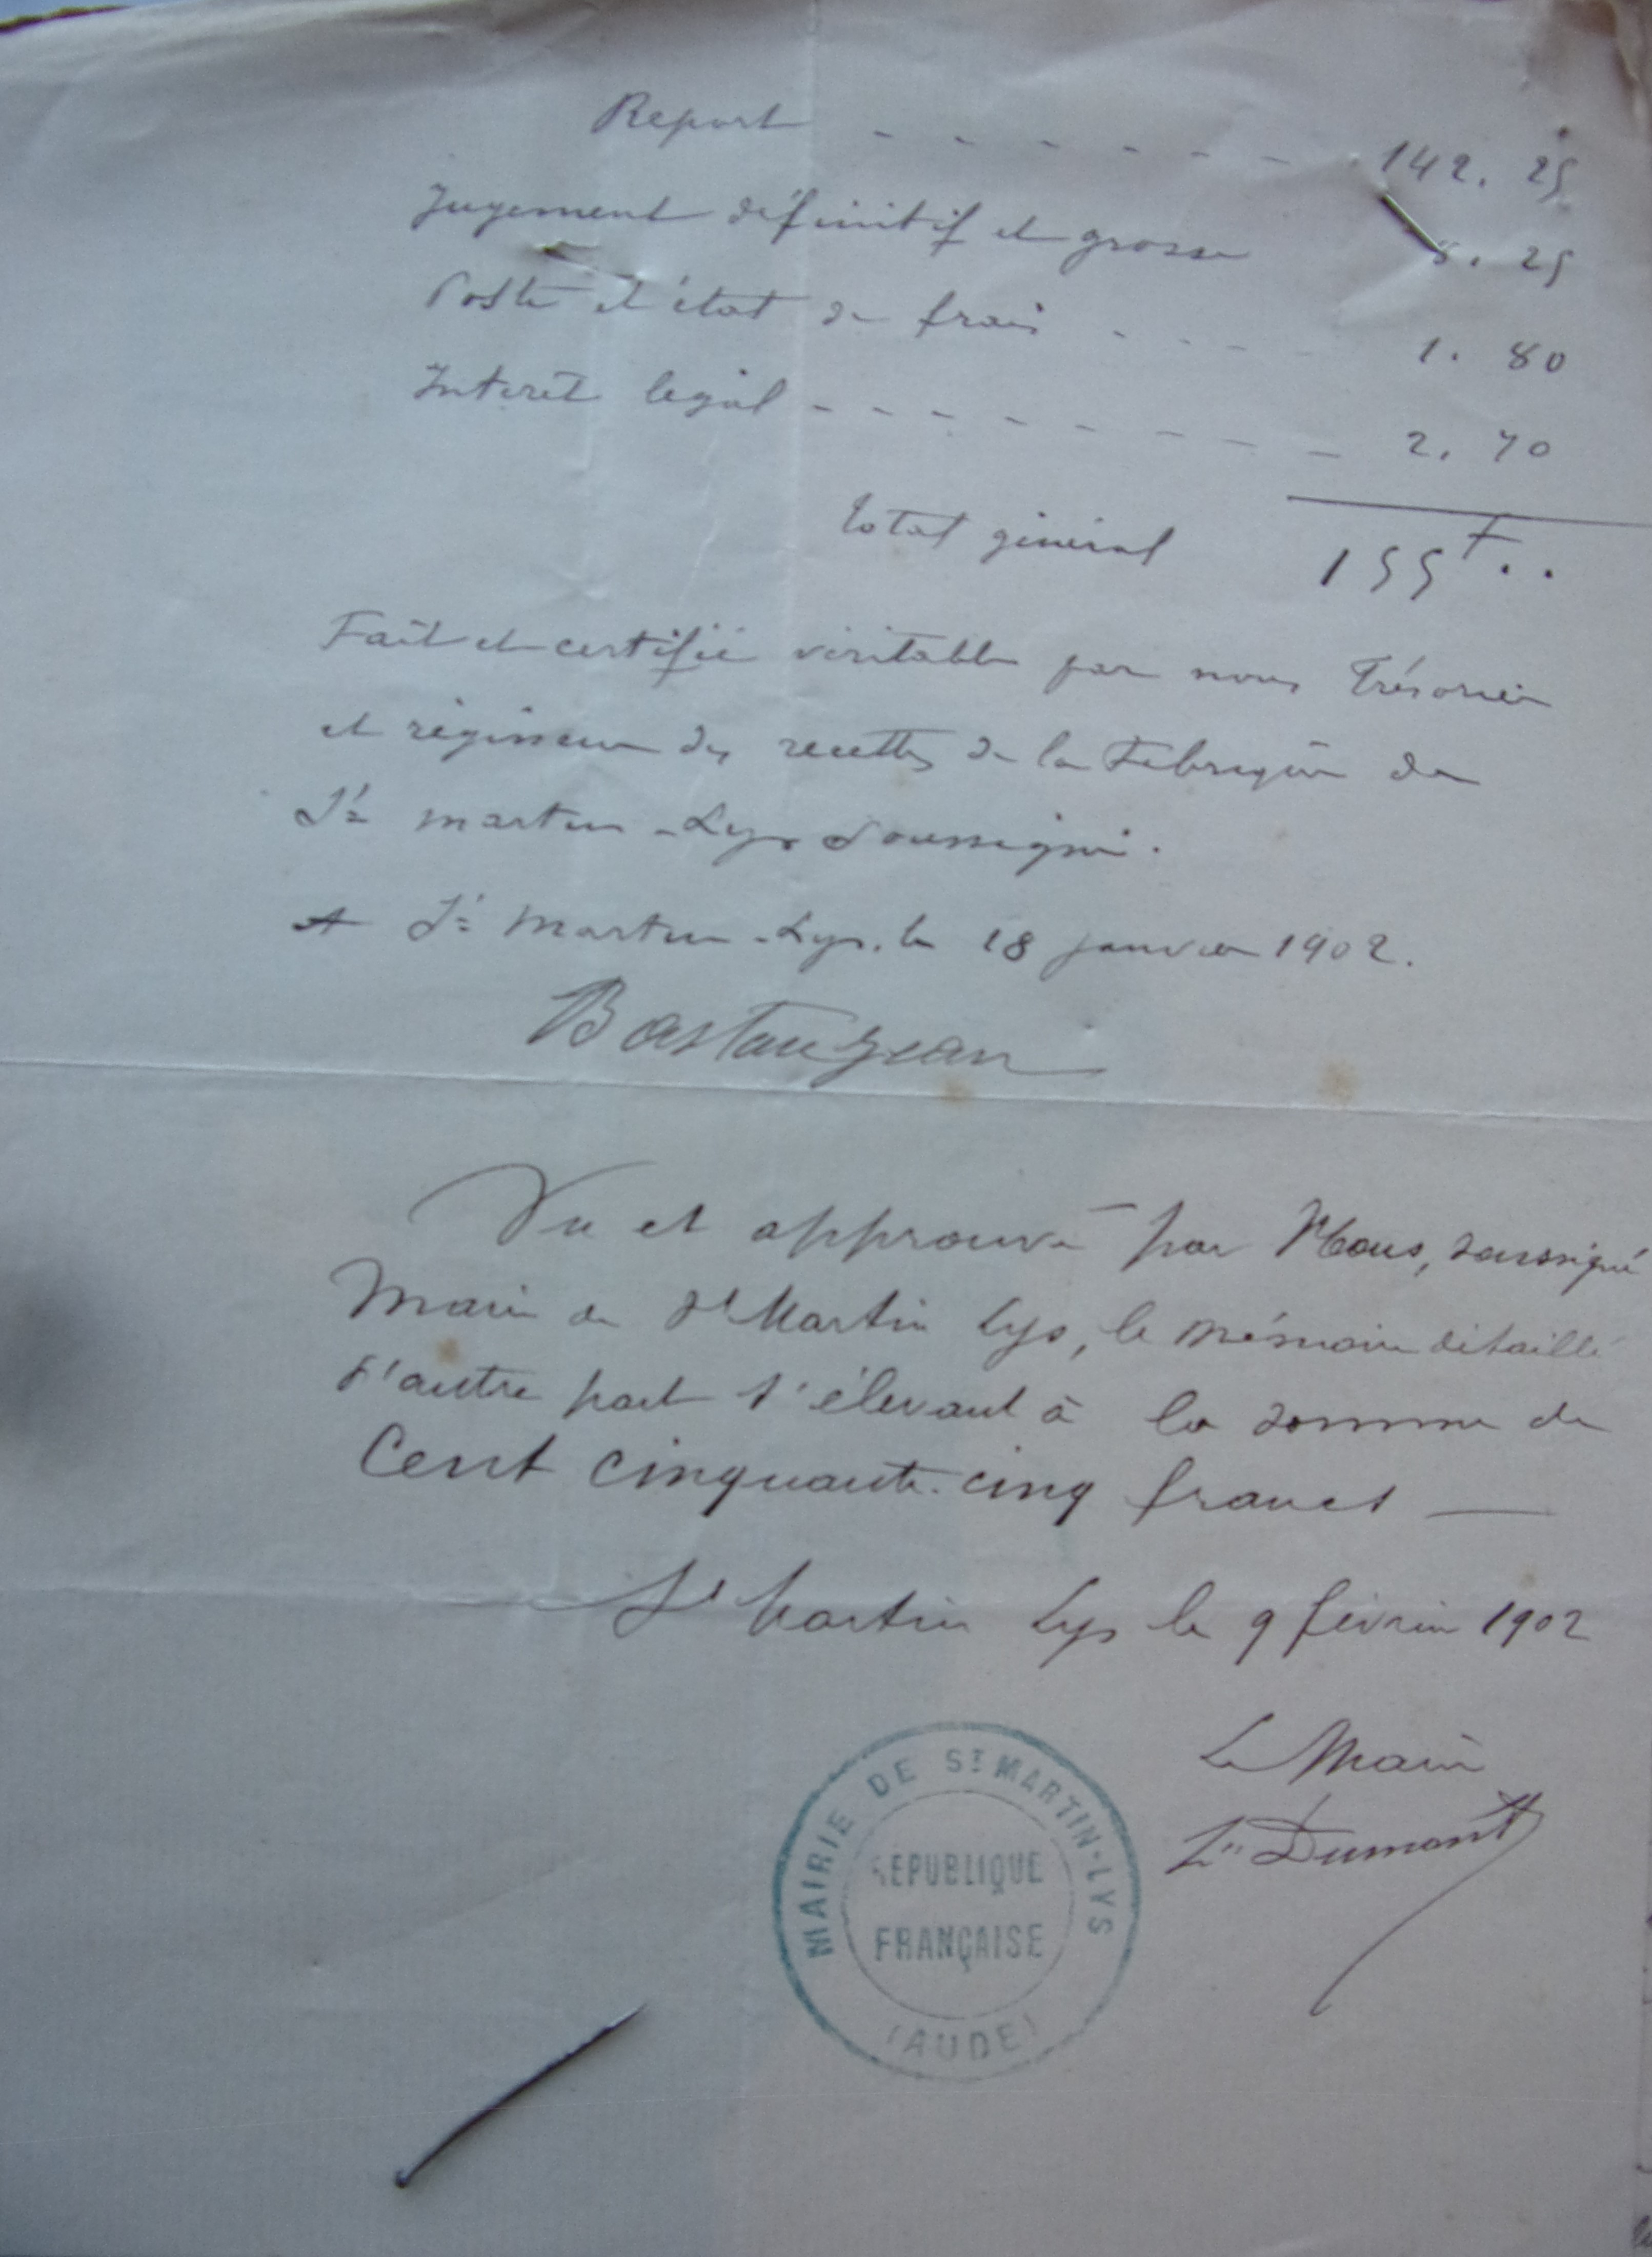 Report - - - - - - 142. 25
Jugement définitif et grosse 8. 25
Poste et état de frais - - - - 1. 80
Interêt legal - - - - - - - - 2. 70
Total général 155F..
Fait et certifié véritable par nous Trésorier
et régisseur des recettes de la Fabrique de
St Martin-Lys soussigné.
A St Martin-Lys, le 18 janvier 1902.
Vu et approuvé par Nous, soussigné
Maire de St Martin Lys, le mémoire détaillé
d'autre part s'élevant à la somme de
Cent cinquante-cinq francs —
St Martin Lys le 9 février 1902
Le Maire
Dumont
MAIRIE DE ST MARTIN-LYS
RÉPUBLIQUE
FRANÇAISE
(AUDE)